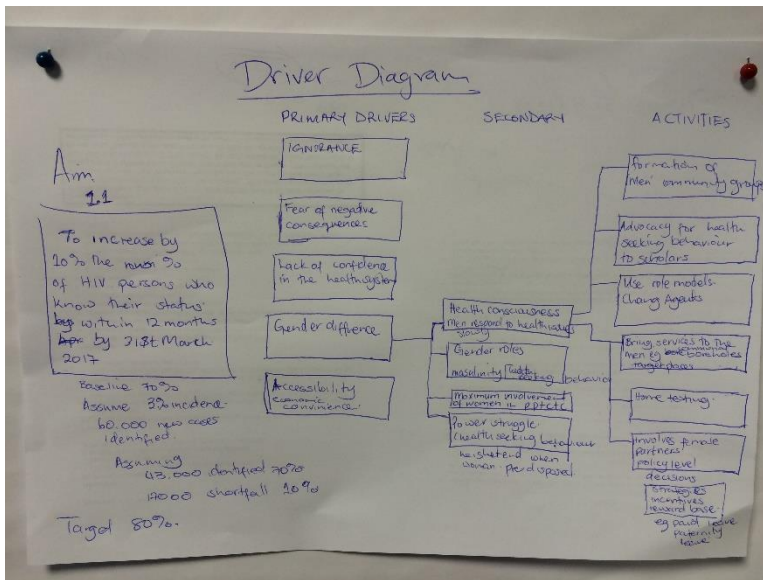 Driver Diagram
PRIMARY DRIVERS
SECONDARY
ACTIVITIES
Aim
1.1
To increase by
10% the %
of HIV persons who
know their status
within 12 months
by 31st March
2017
Baseline 70%
Assume 3% incidence
60.000 new cases
identified.
Assuming
43.000 identified 70%
17000 shortfall 10%
Target 80%.
IGNORANCE
Fear of negative
consequences
Lack of confidence
in the health system
Gender diffrence
Accessibility
economic
convinience
Health consciousness
Men respond to health issues
slowly
Gender roles
masculinity seeking behavior
Maximum involvement
of women in
Power struggle
health seeking behaviour
when
woman
formation of
Men community groups
Advocacy for health
seeking behaviour
to scholars
Use role models
Chang Agents
Bring services to the
men eg boreholes
places
Home testing.
Involves female
partners
policy level
decisions
strategies
incentives
reward base
eg paid leave
paternity
leave